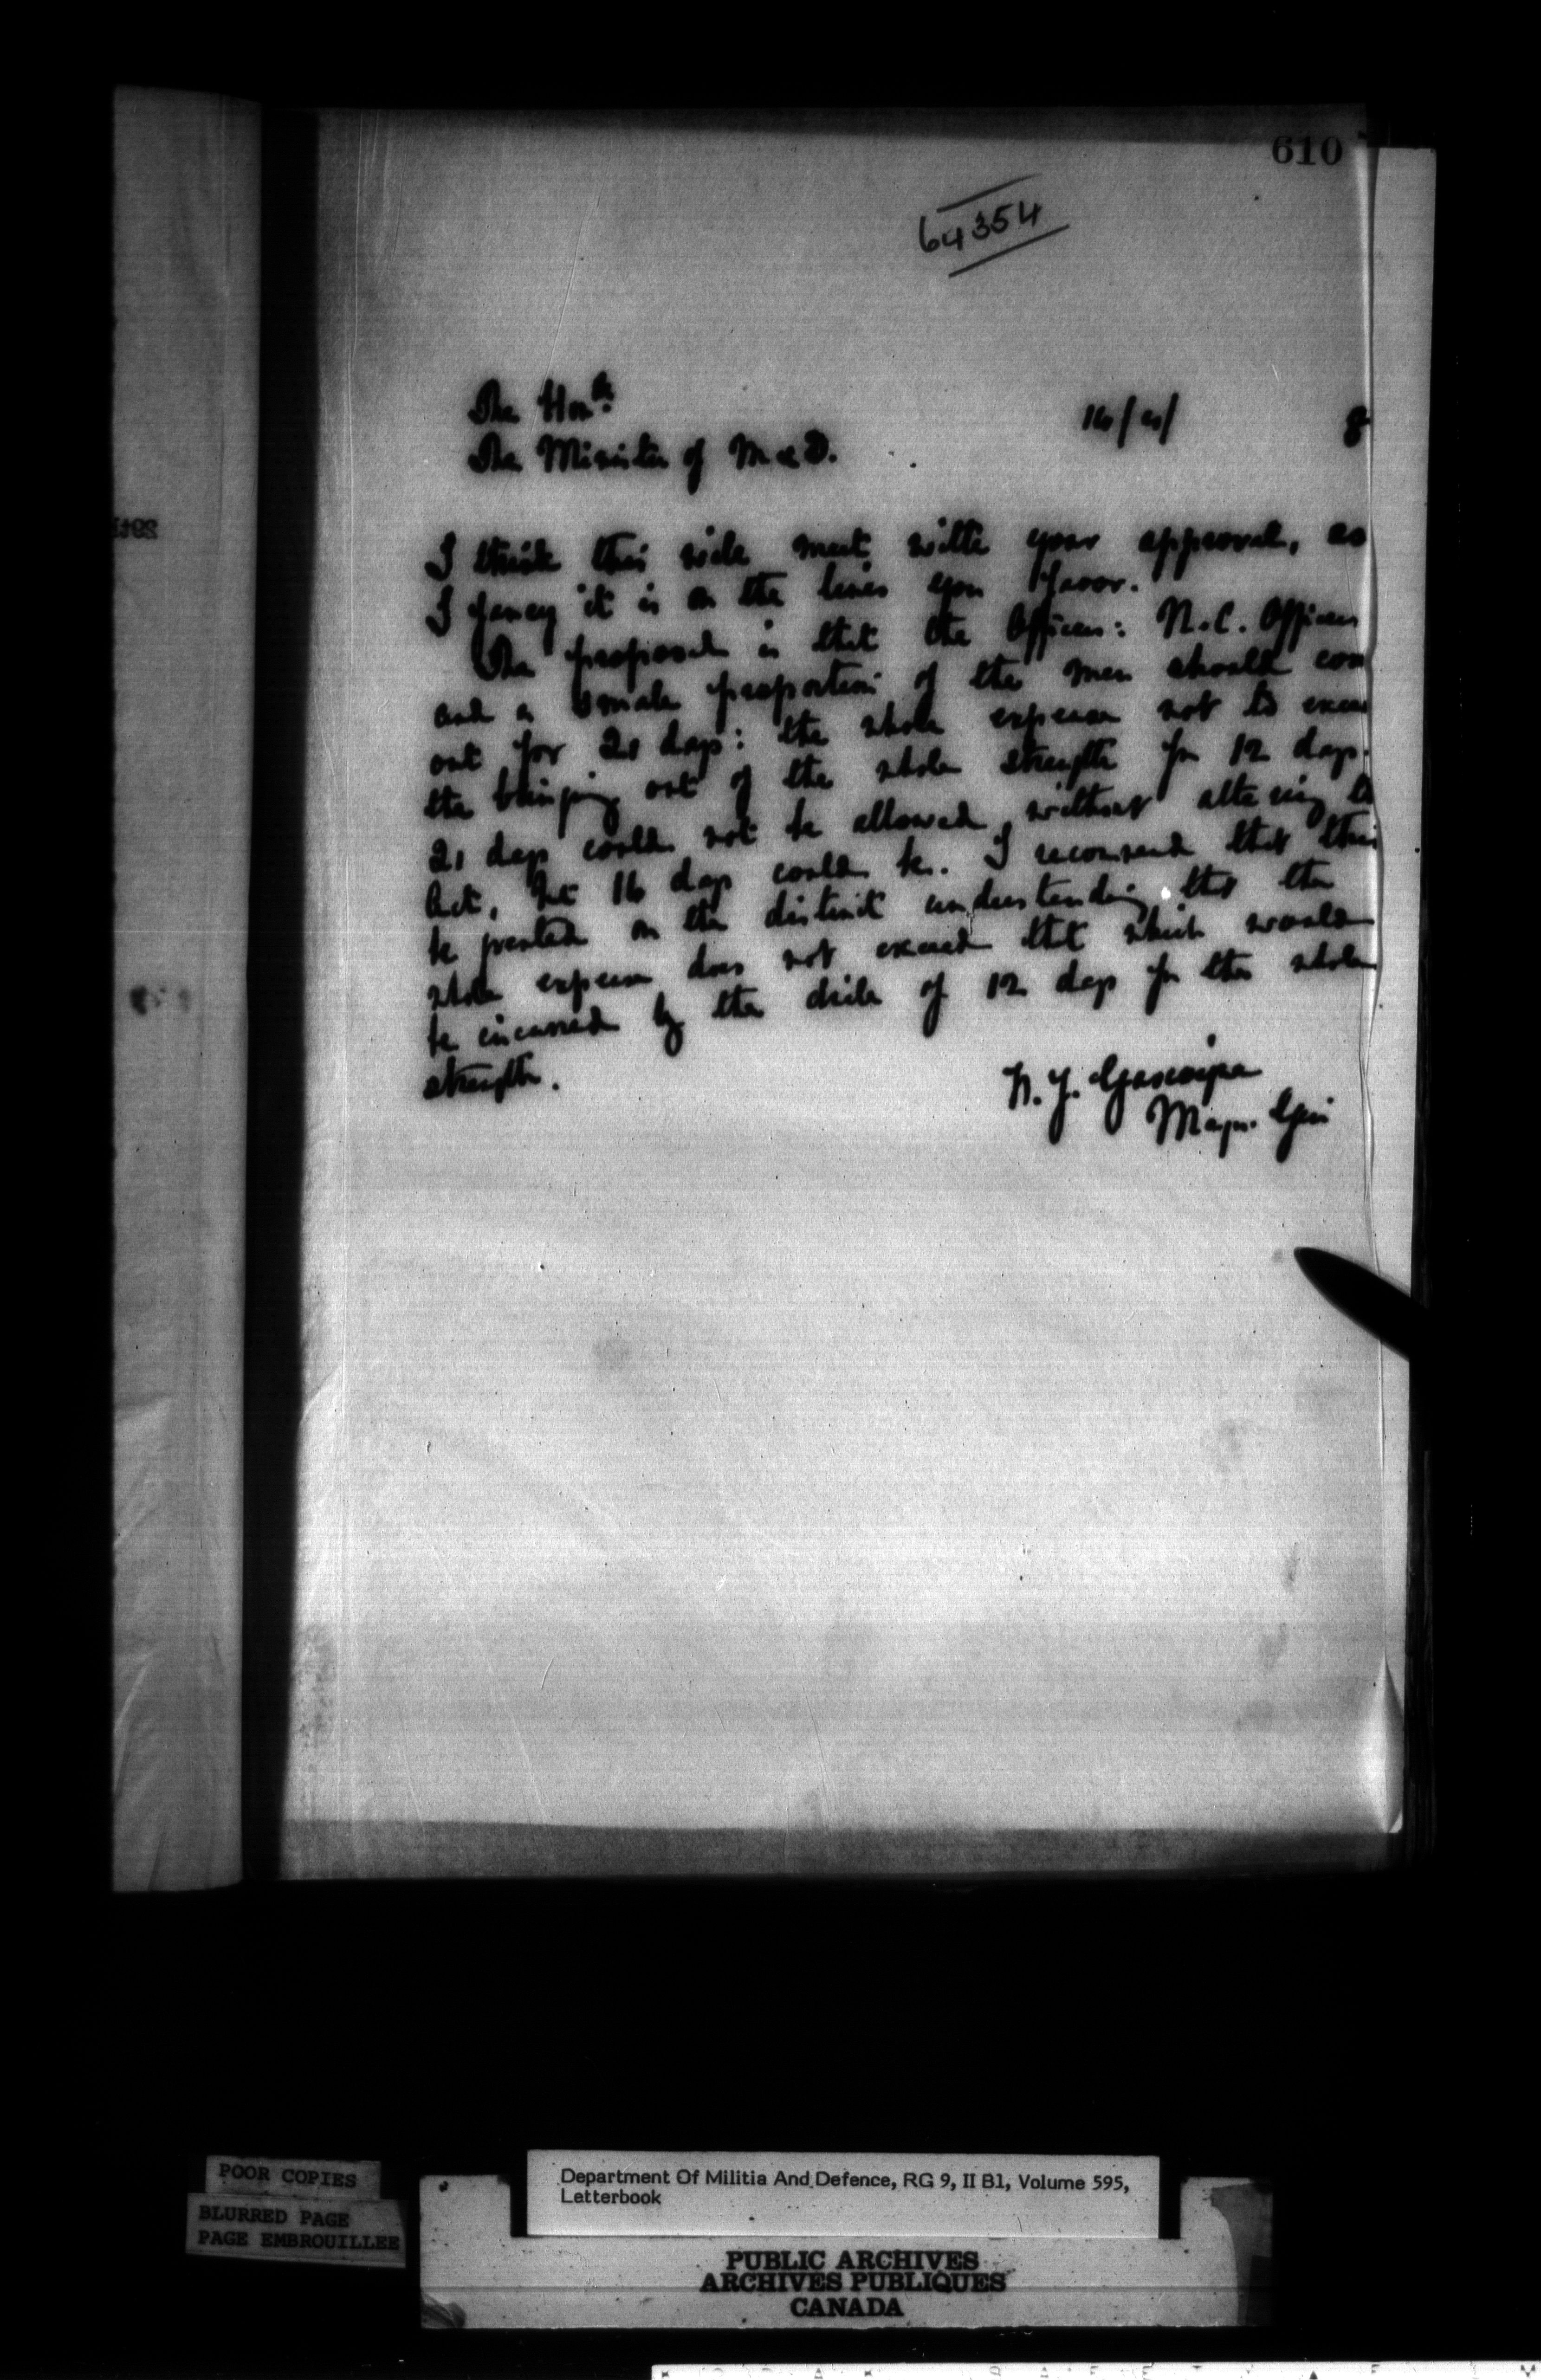 610
64354
The Honble
The Minister of M & D.
I think this will meet with your approval, as
I fancy it is on the lines you favor.
The proposal is that the Officers: N.C. Officers
and a small proportion of the men should com
out for 21 days: the whole expense not to excee
the bringing out of the whole strength for 12 days.
21 days could not be allowed without altering the
Act, but 16 days could be. I recommend that this
be granted on the distinct understanding that the
whole expense does not exceed that which would
be incurred by the drill of 12 days for the whole
strength.
W. J. Gascoigne
Major. Gen
POOR COPIES
BLURRED PAGE
PAGE EMBROUILLEE
Department Of Militia And Defence, RG 9, II B1, Volume 595,
Letterbook
PUBLIC ARCHIVES
ARCHIVES PUBLIQUES
CANADA